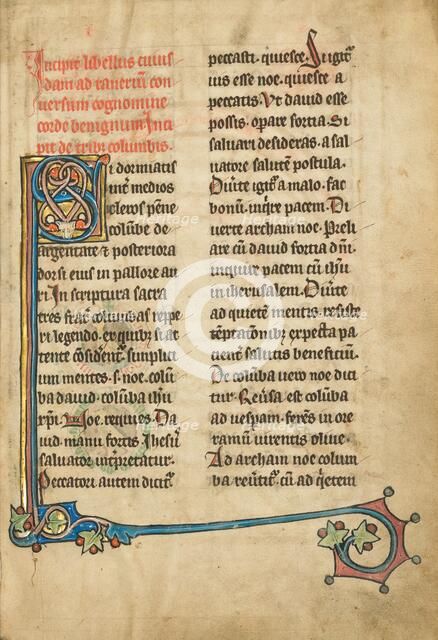 Incipit libellus cuius
dam ad ranerīū con
uersum cognomine
corde benignum. Inci
pit de tribꝫ columbis.
Si dormiatis
int̄ medios
cleros pēne
colūbe de
argentate ⁊ posteriora
dorsi eius in pallore au
ri. In scriptura sacra
tres frat̄ columbas reperi
legendo. ex quibꝫ si at
tente
simplici
um mentes. s. noe. colū
ba dauid. colūba ihū
xp̄i. Noe. requies. Da
uid. manu fortis. Ihesꝰ
saluator int̄pretatur.
Peccatori autem
peccasti. quiesce. Si igit̄
uis esse noe. quiesce a
peccatis. Vt dauid esse
possis. opare fortia. Si
saluari desideras. a sal
uatore salutē postula.
Diūte igit̄ a malo. fac
bonū. inq̄re pacem. Di
uerte archam noe. Preli
are cū dauid fortia dn̄i.
inquire pacem cū ihū
in iherusalem. Diūte
ad quietē mentis. resiste
tēptationibꝫ. expecta pa
cient̄ salutis beneficiū.
De colūba uero noe dici
tur. Reūsa est colūba
ad uesꝑam. ferēs in ore
ramū uirentis oliue.
Ad archam noe colum
ba reūtit̄. cū ad q̄etem
Heritage
Heritage
Heritage
Heritage